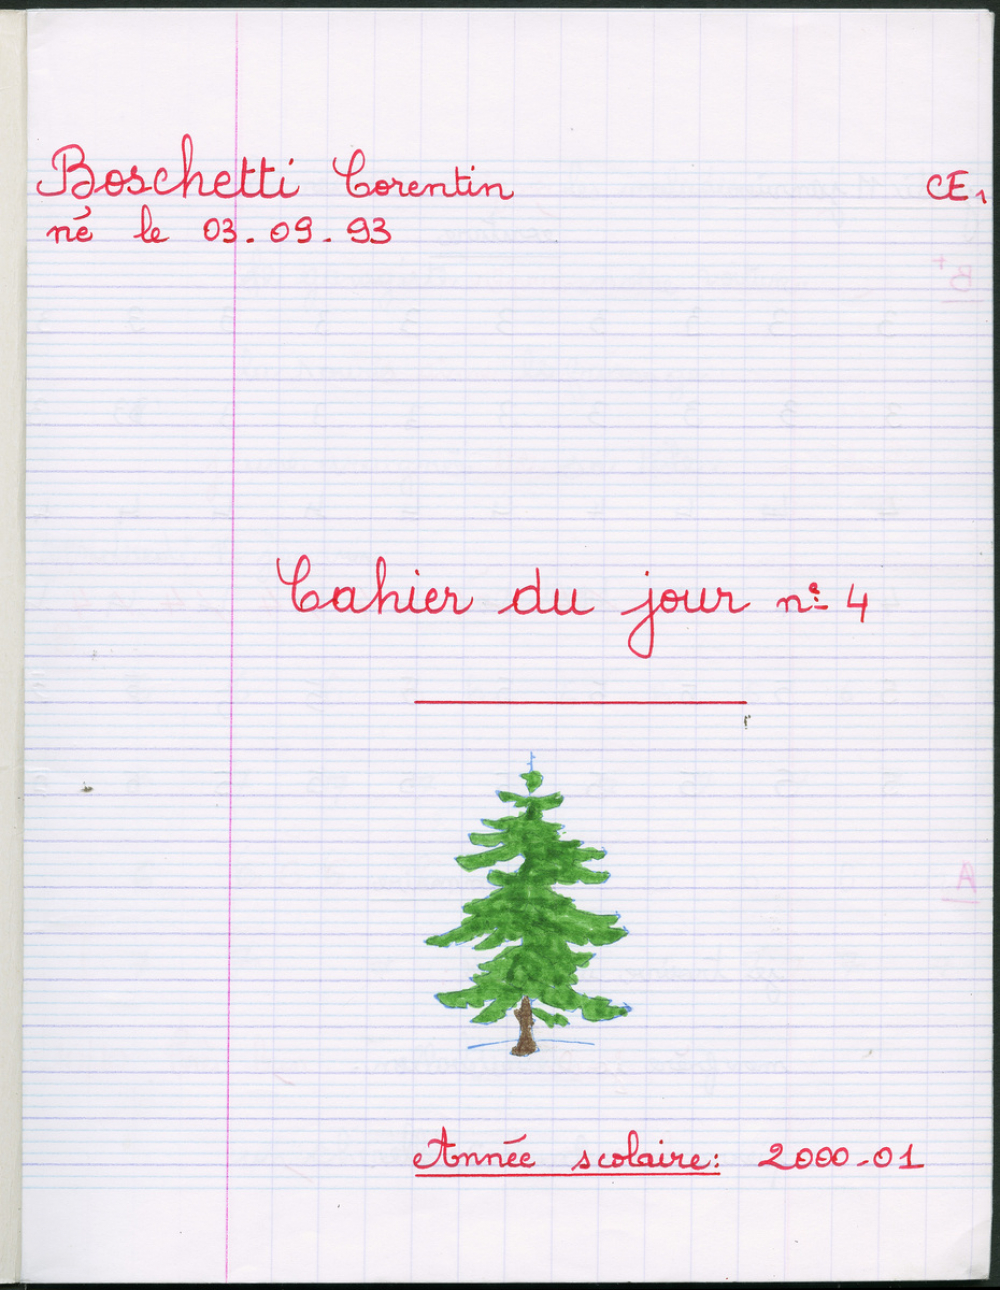 Boschetti Corentin
CE1
né le 03.09.93
Cahier du jour n° 4
Année scolaire: 2000-01